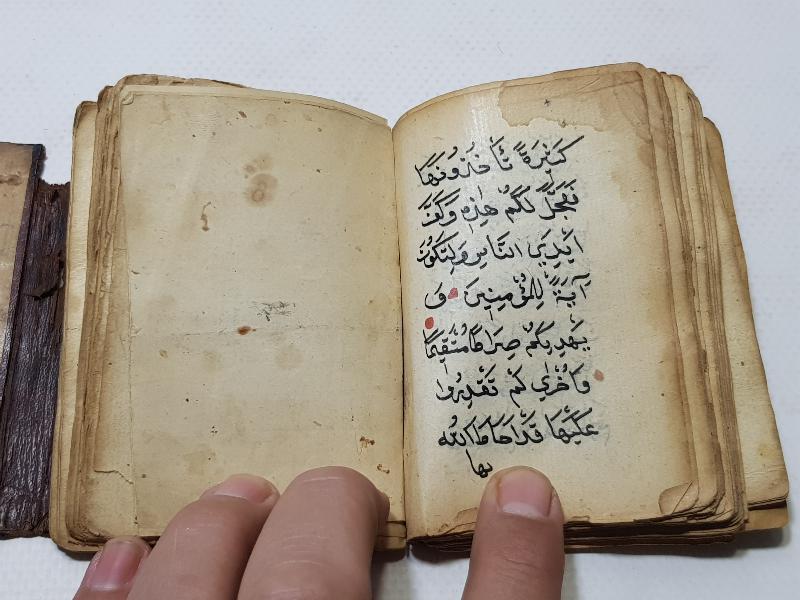 كَثِيرَةً تَأْخُذُونَهَا
فَعَجَّلَ لَكُمْ هٰذِهِ وَكَفَّ
اَيْدِيَ النَّاسِ وَلِتَكُونَ
آيَةً لِلْمُؤْمِنِينَ وَ
يَهْدِيَكُمْ صِرَاطًا مُسْتَقِيمًا
وَاُخْرٰي لَمْ تَقْدِرُوا
عَلَيْهَا قَدْ اَحَاطَ اللّٰهُ
بها